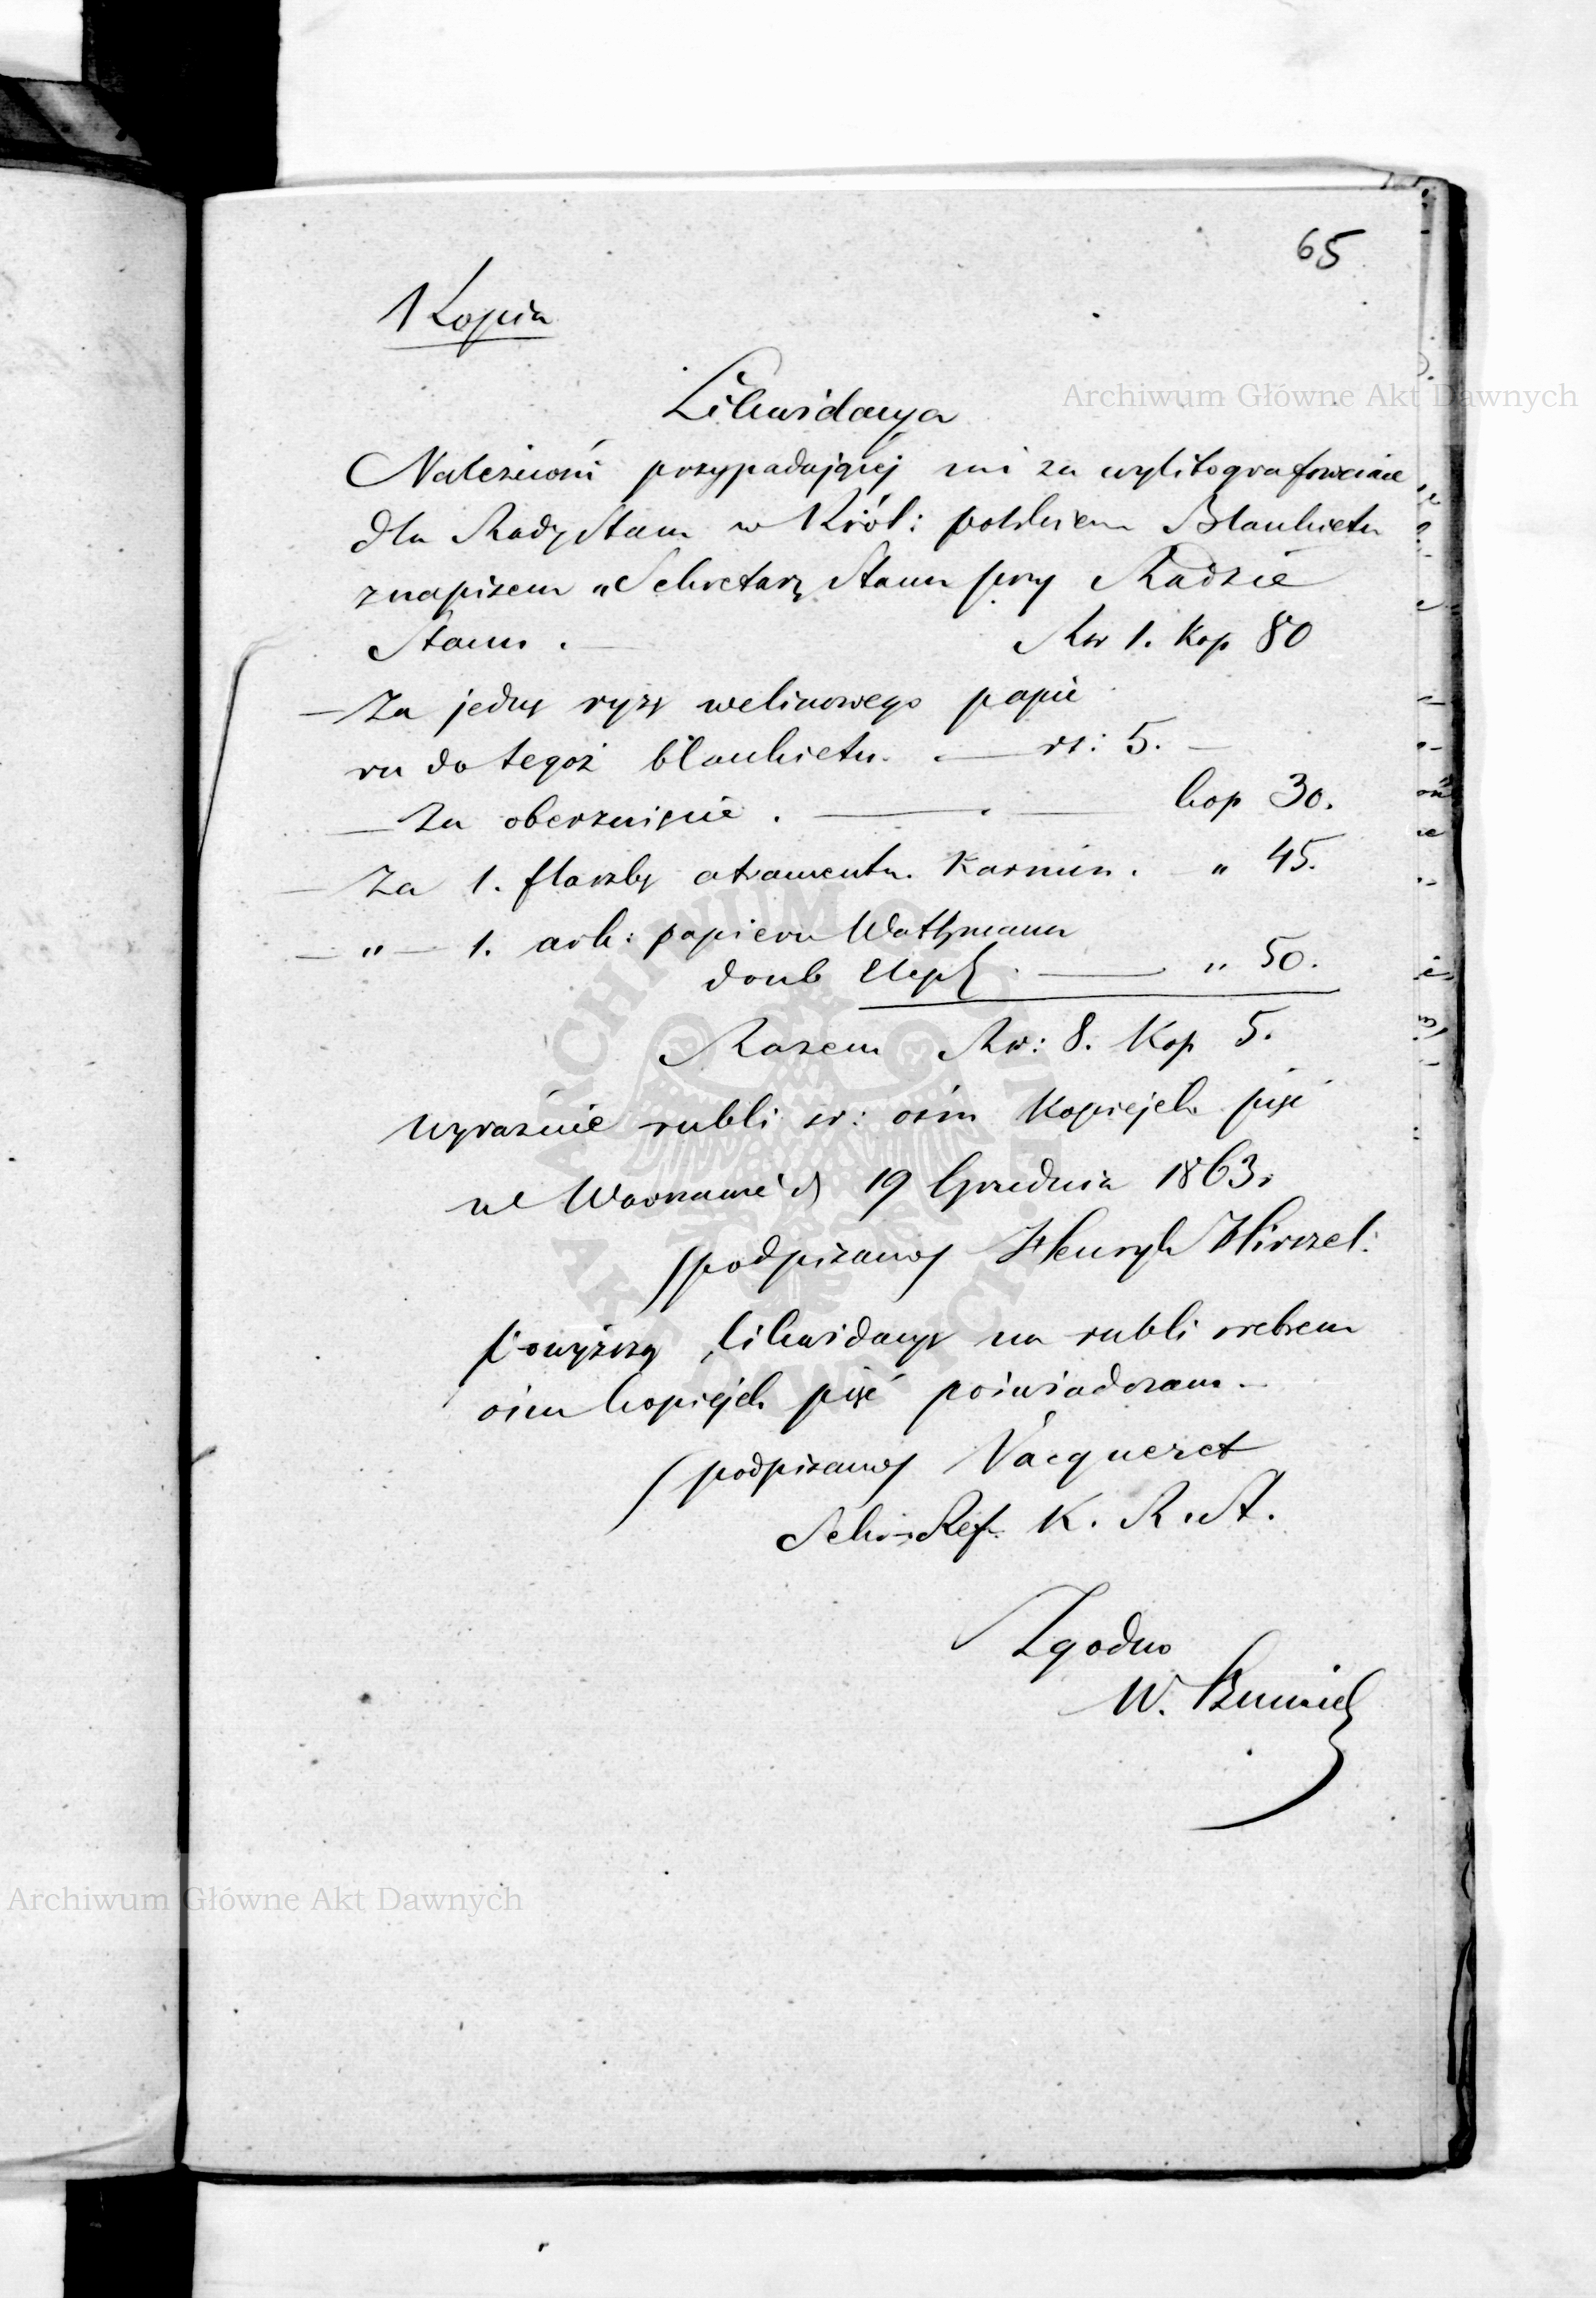 65
Kopia
Likwidacya
Należności przypadającéj mi za wylitografowanie
dla Rady Stanu w Król: polskiem Blankietu
z napisem „Sekretarz Stanu przy Radzie
Stanu. — Rsr 1. Kop 80
— Za jedną ryzę welinowego papie
ru do tegoż blankietu. — rs: 5. —
— Za oberznięcie . — . — kop 30.
— Za 1. flaszkę atramentu Karmin. „ 45.
— „ — 1. ark: papieru Wathmann
doub Eleph. — „ 50.
Razem Rsr: 8. Kop 5.
wyraźnie rubli sr: ośm Kopiejek pięć
w Warszawie d 19 Grudnia 1863 r
/podpisany/ Henryk Hirszel:
Powyższą likwidacyę na rubli srebrem
ośm kopiejek pięć poświadczam —
/podpisany/ Vacqueret
Sekr. Ref. K. R. St.
Zgodno
W.
Archiwum Główne Akt Dawnych
Archiwum Główne Akt Dawnych
ARCHIWUM GŁÓWNE AKT DAWNYCH